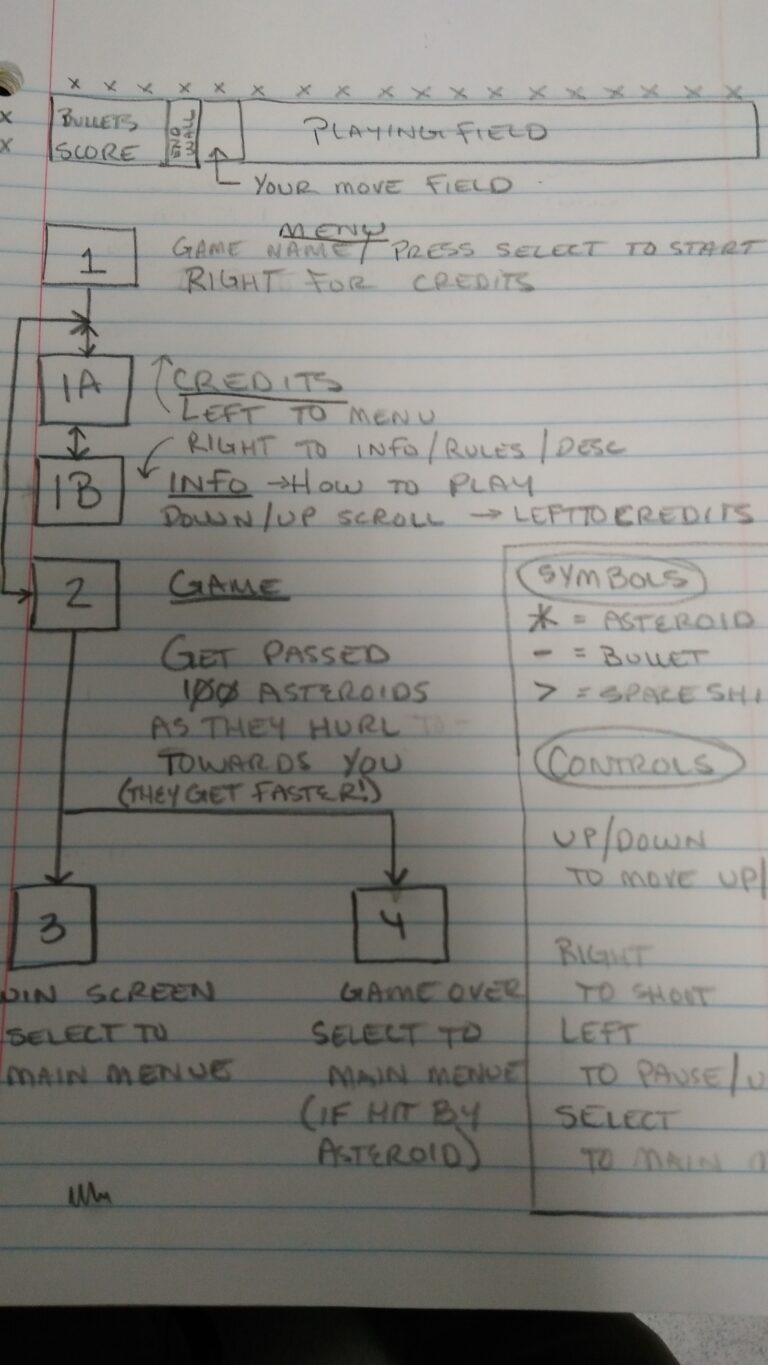 x x x x x x x x x x x x x x x x x x
x
x
BULLETS
SCORE
PLAYING FIELD
YOUR MOVE FIELD
1
MENU
GAME NAME / PRESS SELECT TO START
RIGHT FOR CREDITS
1A
CREDITS
LEFT TO MENU
RIGHT TO INFO/RULES/DESC
1B
INFO → HOW TO PLAY
DOWN/UP SCROLL → LEFT TO CREDITS
2
GAME
GET PASSED
100 ASTEROIDS
AS THEY HURL
TOWARDS YOU
(THEY GET FASTER!)
3
WIN SCREEN
SELECT TO
MAIN MENUE
4
GAME OVER
SELECT TO
MAIN MENUE
(IF HIT BY
ASTEROID)
SYMBOLS
* = ASTEROID
- = BULLET
> = SPACE SHI
CONTROLS
UP/DOWN
TO MOVE UP/
RIGHT
TO SHOOT
LEFT
TO PAUSE/U
SELECT
TO MAIN M